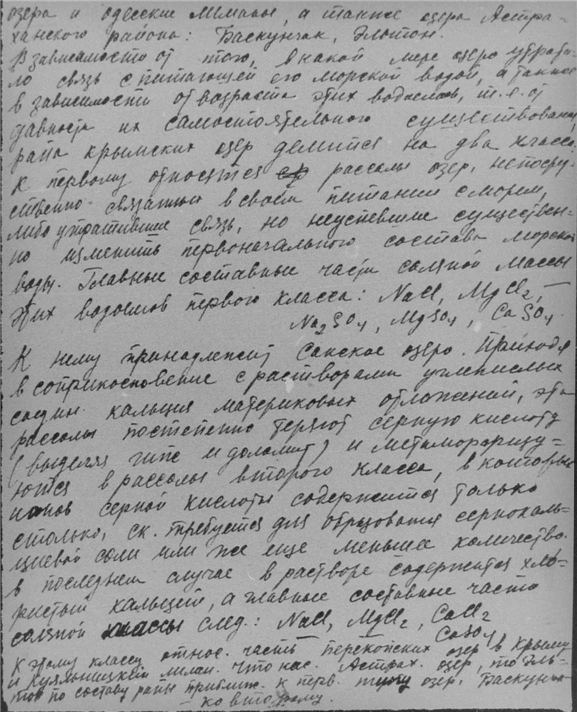 озера и одесские лиманы, а также озера Астра-
ханского района: Баскунчак, Эльтон.
В зависимости от того, в какой мере озеро утрати-
ло связь с питающей его морской водой, а также
в зависимости от возраста этих водоемов, т.е. от
давности их самостоятельного существования,
рапа крымских озер делится на два класса.
К первому относятся рассолы озер, непосред-
ственно связанных в своем питании с морем,
либо утратившие связь, но неуспевшие существен-
но изменить первоначального состава морской
воды. Главные составные части соляной массы
этих водоемов первого класса: NaCl, MgCl2, –
Na2SO4, MgSO4, CaSO4.
К нему принадлежит Сакское озеро. Приходя
в соприкосновение с растворами углекислых
соедин. кальция материковых отложений, эти
рассолы постепенно теряют серную кислоту
(выделяя гипс и доломит) и метаморфризу-
ются в рассолы второго класса, в которых
ионов серной кислоты содержится только
столько, ск. требуется для образования сернокаль-
циевой соли или же еще меньшее количество.
в последнем случае в растворе содержится хло-
ристый кальций, а главные составные части
соляной массы след.: NaCl, MgCl2, CaCl2
CaSO4
К этому классу относ. часть перекопских озер в Крыму
и Куяльницкий лиман. Что кас. Астрах. озер, то Эль-
тон по составу рапы приближ. к перв. типу озер, Баскунчак
– ко второму.